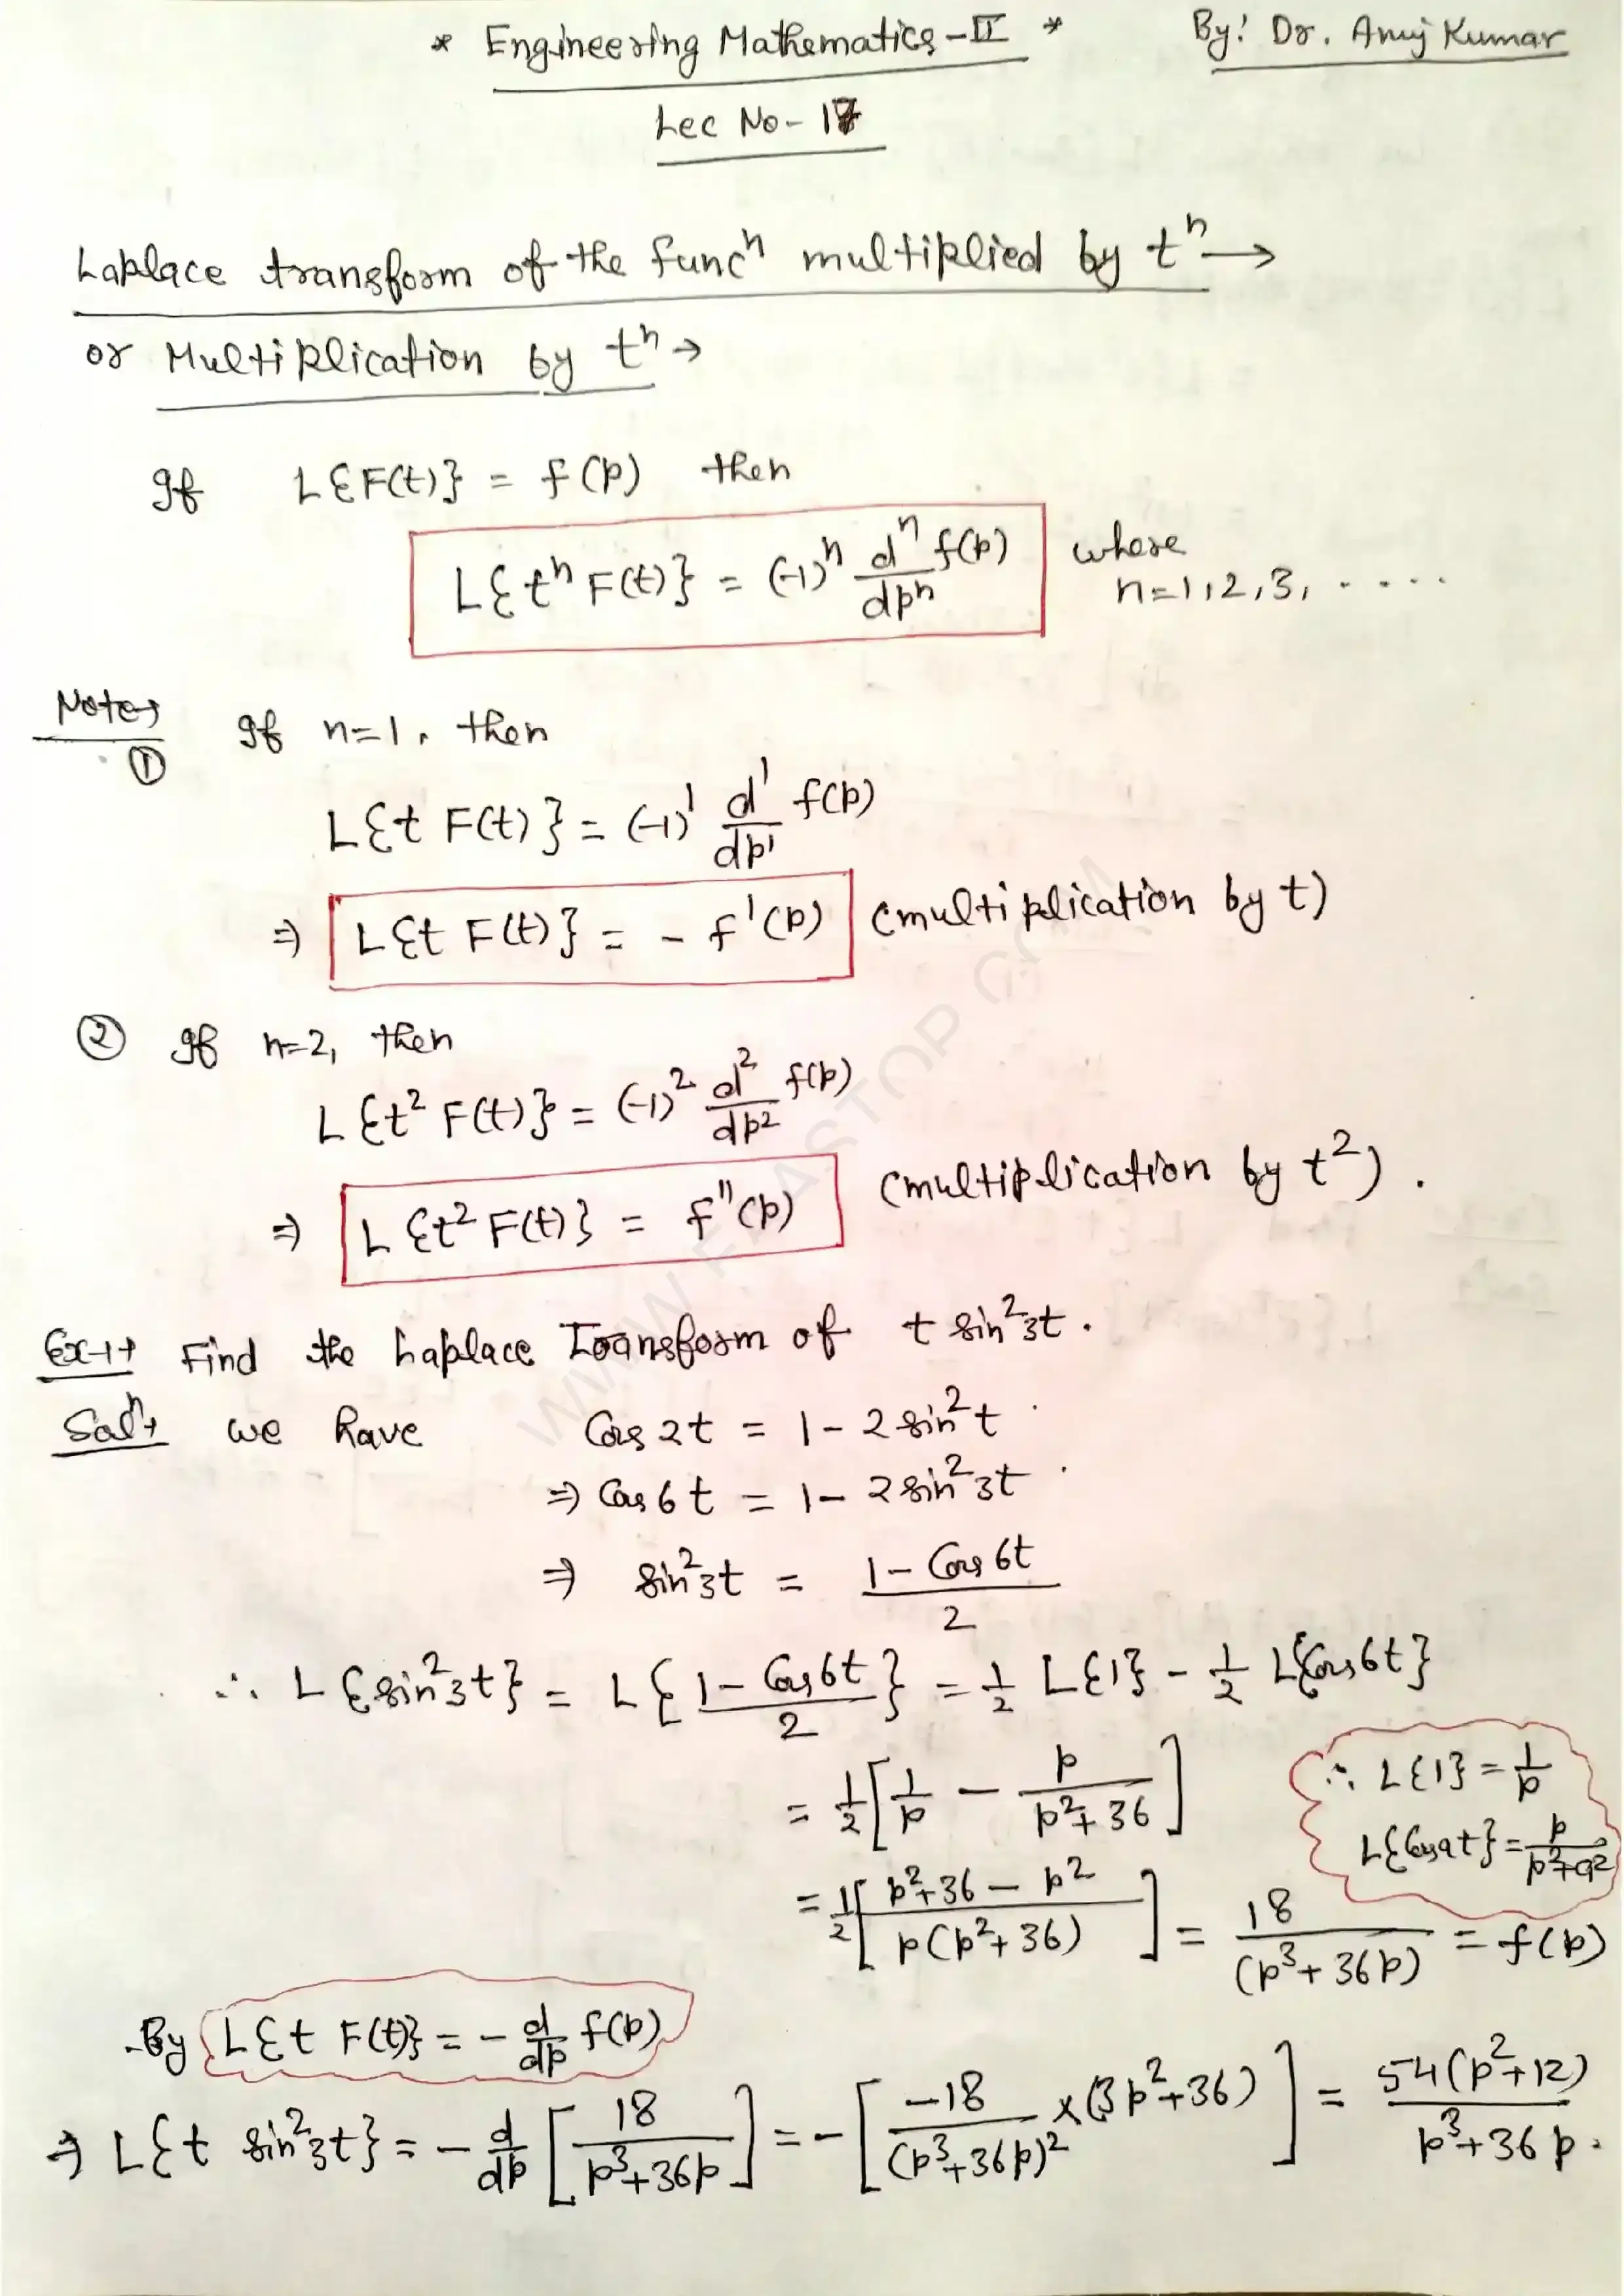 * Engineering Mathematics-II * By: Dr. Anuj Kumar
Lec No- 17
Laplace transform of the funcⁿ multiplied by tⁿ →
or Multiplication by tⁿ →
If L{F(t)} = f(p) then
L{tⁿ F(t)} = (-1)ⁿ dⁿ/dpⁿ f(p) where n=1,2,3, .....
Note→
① If n=1, then
L{t F(t)} = (-1)¹ d¹/dp¹ f(p)
⇒ L{t F(t)} = - f'(p) (multiplication by t)
② If n=2, then
L{t² F(t)} = (-1)² d²/dp² f(p)
⇒ L{t² F(t)} = f''(p) (multiplication by t²).
Ex-1→ Find the Laplace Transform of t sin²3t.
Solⁿ→ we have Cos 2t = 1 - 2 sin²t
⇒ Cos 6t = 1 - 2 sin²3t
⇒ sin²3t = (1 - Cos 6t)/2
∴ L{sin²3t} = L{(1 - Cos6t)/2} = 1/2 L{1} - 1/2 L{Cos6t}
= 1/2 [1/p - p/(p²+36)]
∴ L{1} = 1/p
L{Cosat} = p/(p²+a²)
= 1/2 [(p²+36 - p²)/(p(p²+36))] = 18/(p³+36p) = f(p)
By L{t F(t)} = - d/dp f(p)
⇒ L{t sin²3t} = - d/dp [18/(p³+36p)] = - [-18/(p³+36p)² × (3p²+36)] = 54(p²+12)/(p³+36p.
WWW.FAASTOP.COM